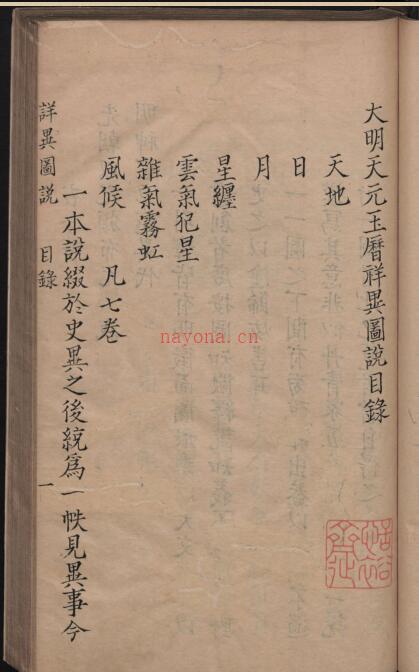 大明天元玉曆祥異圖說目錄
天地
日
月
星纏
雲氣犯星
雜氣霧虹
風候　凡七卷
一本說綴於史異之後統爲一帙見異事今
詳異圖說　目錄　一
nayona.cn